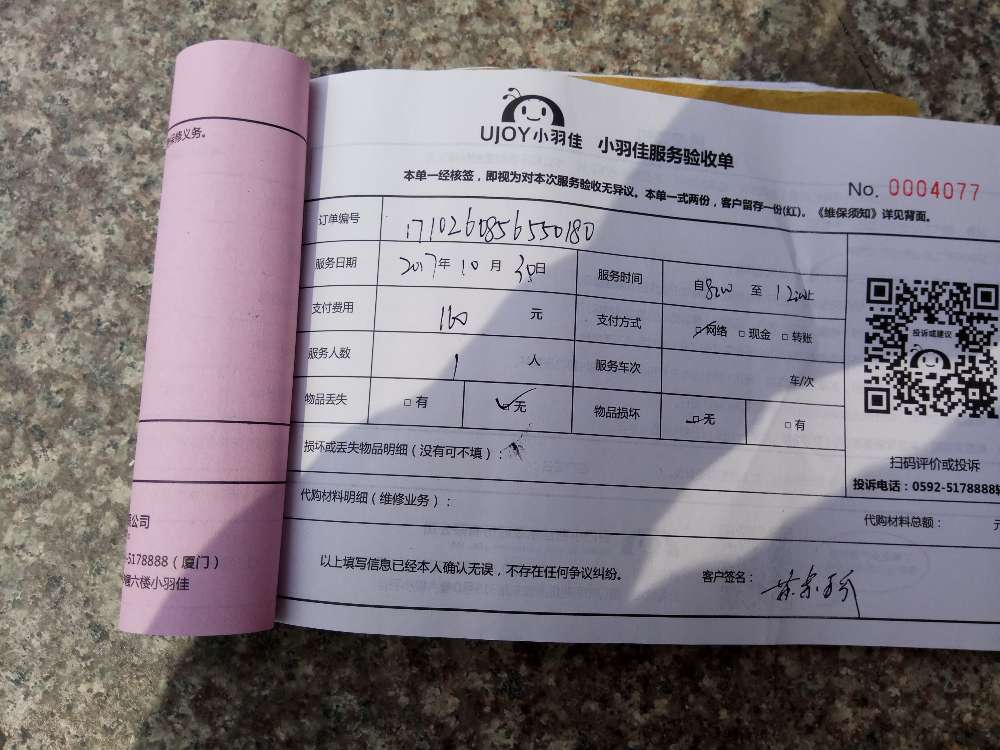 保修义务。
UJOY小羽佳 小羽佳服务验收单
本单一经核签，即视为对本次服务验收无异议。本单一式两份，客户留存一份(红)。《维保须知》详见背面。
No. 0004077
订单编号 1710260856550180
服务日期 2017年10月30日 服务时间 自8:00至12:00止
支付费用 160 元 支付方式 □网络 □现金 □转账
服务人数 1 人 服务车次 车/次
物品丢失 □有 □无 物品损坏 □无 □有
损坏或丢失物品明细（没有可不填）：
代购材料明细（维修业务）：
投诉或建议
扫码评价或投诉
投诉电话：0592-5178888转
代购材料总额： 元
以上填写信息已经本人确认无误，不存在任何争议纠纷。
客户签名：
公司
-5178888（厦门）
六楼小羽佳